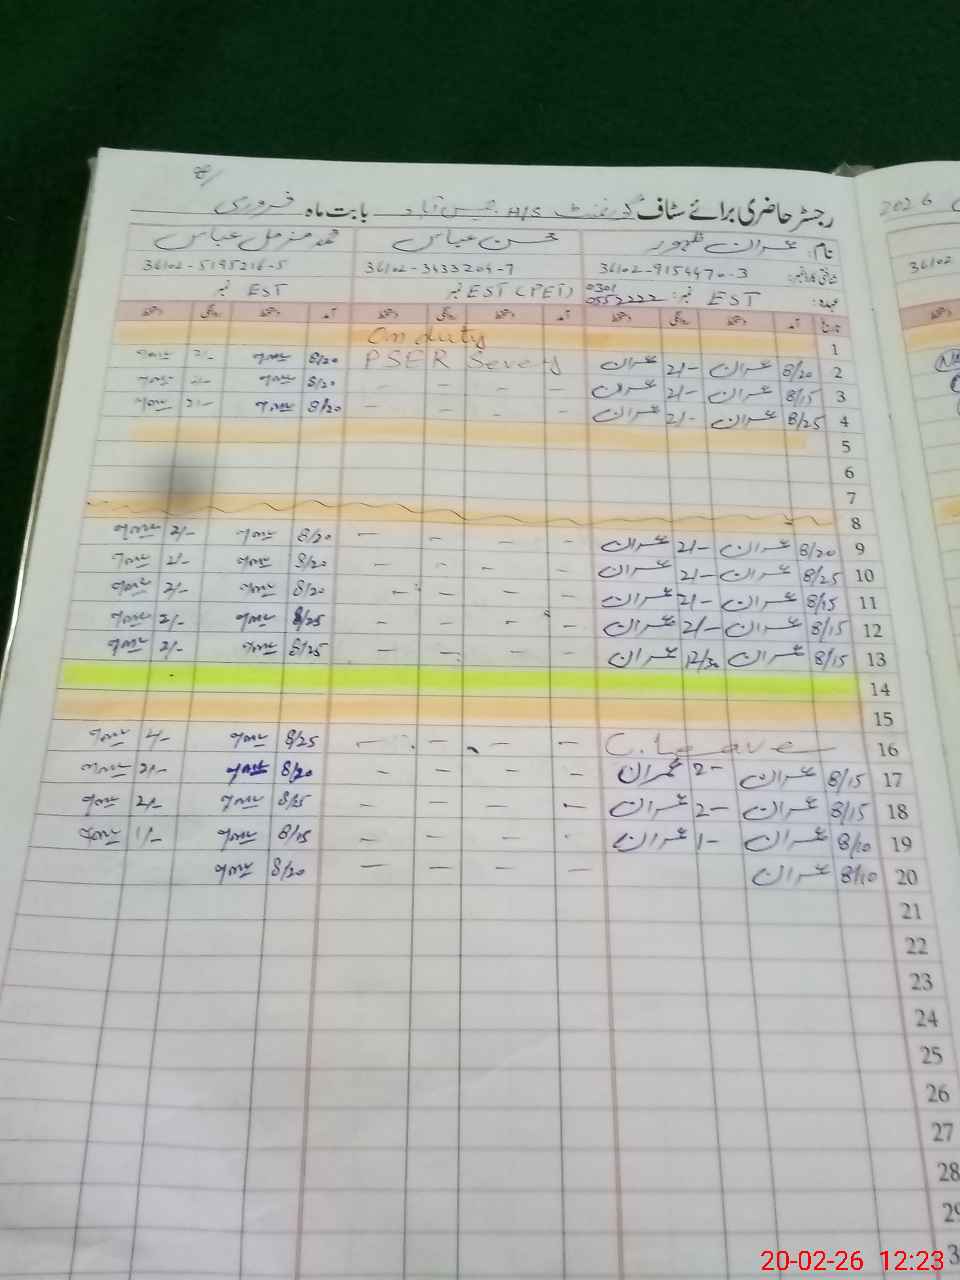 رجسٹر حاضری برائے سٹاف گورنمنٹ H/S بابت ماہ فروری
2026
نام: عمران ظہور محسن عباس محمد مزمل عباس
36102-9154470-3 36102-3433204-7 36102-5195216-5
36102
عہدہ: EST نمبر: 0301 0552222 EST (PET) نمبر EST نمبر
تاریخ آمد دستخط روانگی دستخط آمد دستخط روانگی دستخط آمد دستخط روانگی دستخط
1 On duty
2 8/20 عمران 2/- عمران PSER Severy 8/20 2/-
3 8/15 عمران 2/- عمران - - - - 8/20 2/-
4 8/25 عمران 2/- عمران - - - - 8/20 2/-
5
6
7
8
9 8/20 عمران 2/- عمران - - - - 8/20 2/-
10 8/25 عمران 2/- عمران - - - - 8/20 2/-
11 8/15 عمران 2/- عمران - - - - 8/20 2/-
12 8/15 عمران 2/- عمران - - - - 8/25 2/-
13 8/15 عمران 12/30 عمران - - - - 8/25 2/-
14
15
16 C. Leave - - - - 8/25
17 8/15 عمران 2- عمران - - - - 8/20 2/-
18 8/15 عمران 2- عمران - - - - 8/25 2/-
19 8/10 عمران 1- عمران - - - - 8/15 1/-
20 8/10 عمران - - - - 8/20
21
22
23
24
25
26
27
28
29
3
20-02-26 12:23